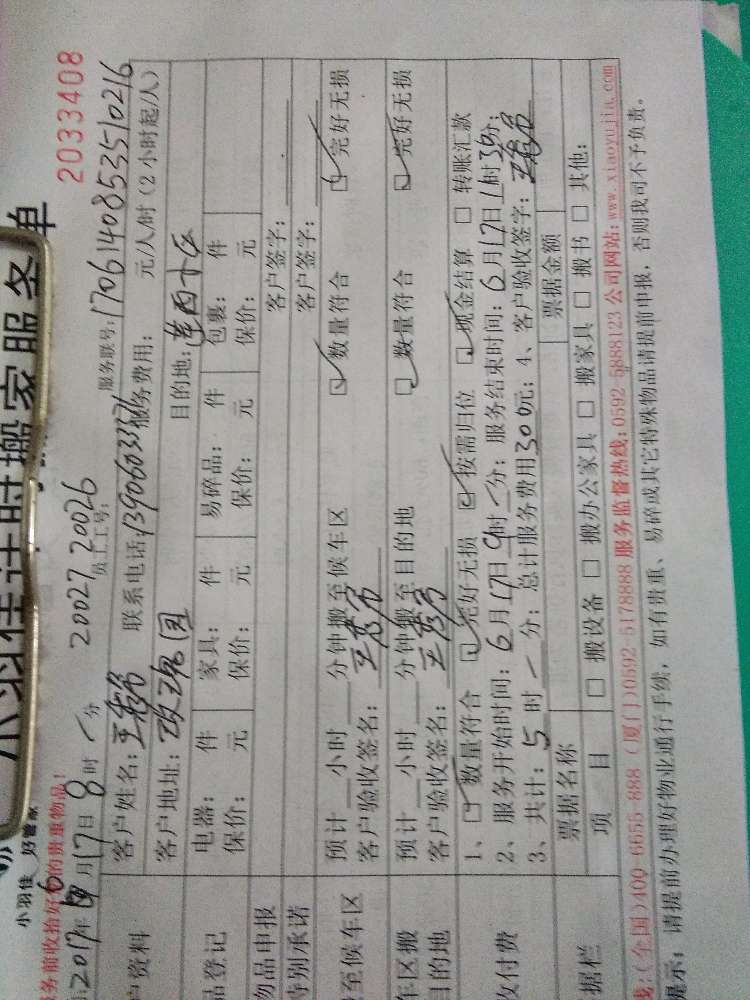 小羽佳 好管家
计时搬家服务单 2033408
务前收拾好的贵重物品!
2017年6月17日8时/分 20027 20026 员工工号: 服务联号: 17061408535 10216
户资料 客户姓名: 联系电话: 服务费用: 元/人/时(2小时起/人)
客户地址: 目的地:
品登记 电器: 件 家具: 件 易碎品: 件 包裹: 件
保价: 元 保价: 元 保价: 元 保价: 元
物品申报 客户签字:
特别承诺 客户签字:
至候车区 预计 小时 分钟搬至候车区 ☑ 数量符合 ☑ 完好无损
客户验收签名:
车区搬 预计 小时 分钟搬至目的地 ☑ 数量符合 ☑ 完好无损
目的地 客户验收签名:
收付费 1、☑ 数量符合 ☑ 完好无损 ☑ 按需归位 ☑ 现金结算 □ 转账汇款
2、服务开始时间: 6月17日9时/分; 服务结束时间: 6月17日1时30分;
3、共计: 5时/分; 总计服务费用300元; 4、客户验收签字:
据栏 票据名称 票据金额
项目 □ 搬设备 □ 搬办公家具 □ 搬家具 □ 搬书 □ 其他:
线:(全国)400-6655-888 (厦门)0592-5178888 服务监督热线:0592-5888123 公司网站:www.xiaoyujia.com
提示: 请提前办理好物业通行手续, 如有贵重、易碎或其它特殊物品请提前申报, 否则我司不予负责。